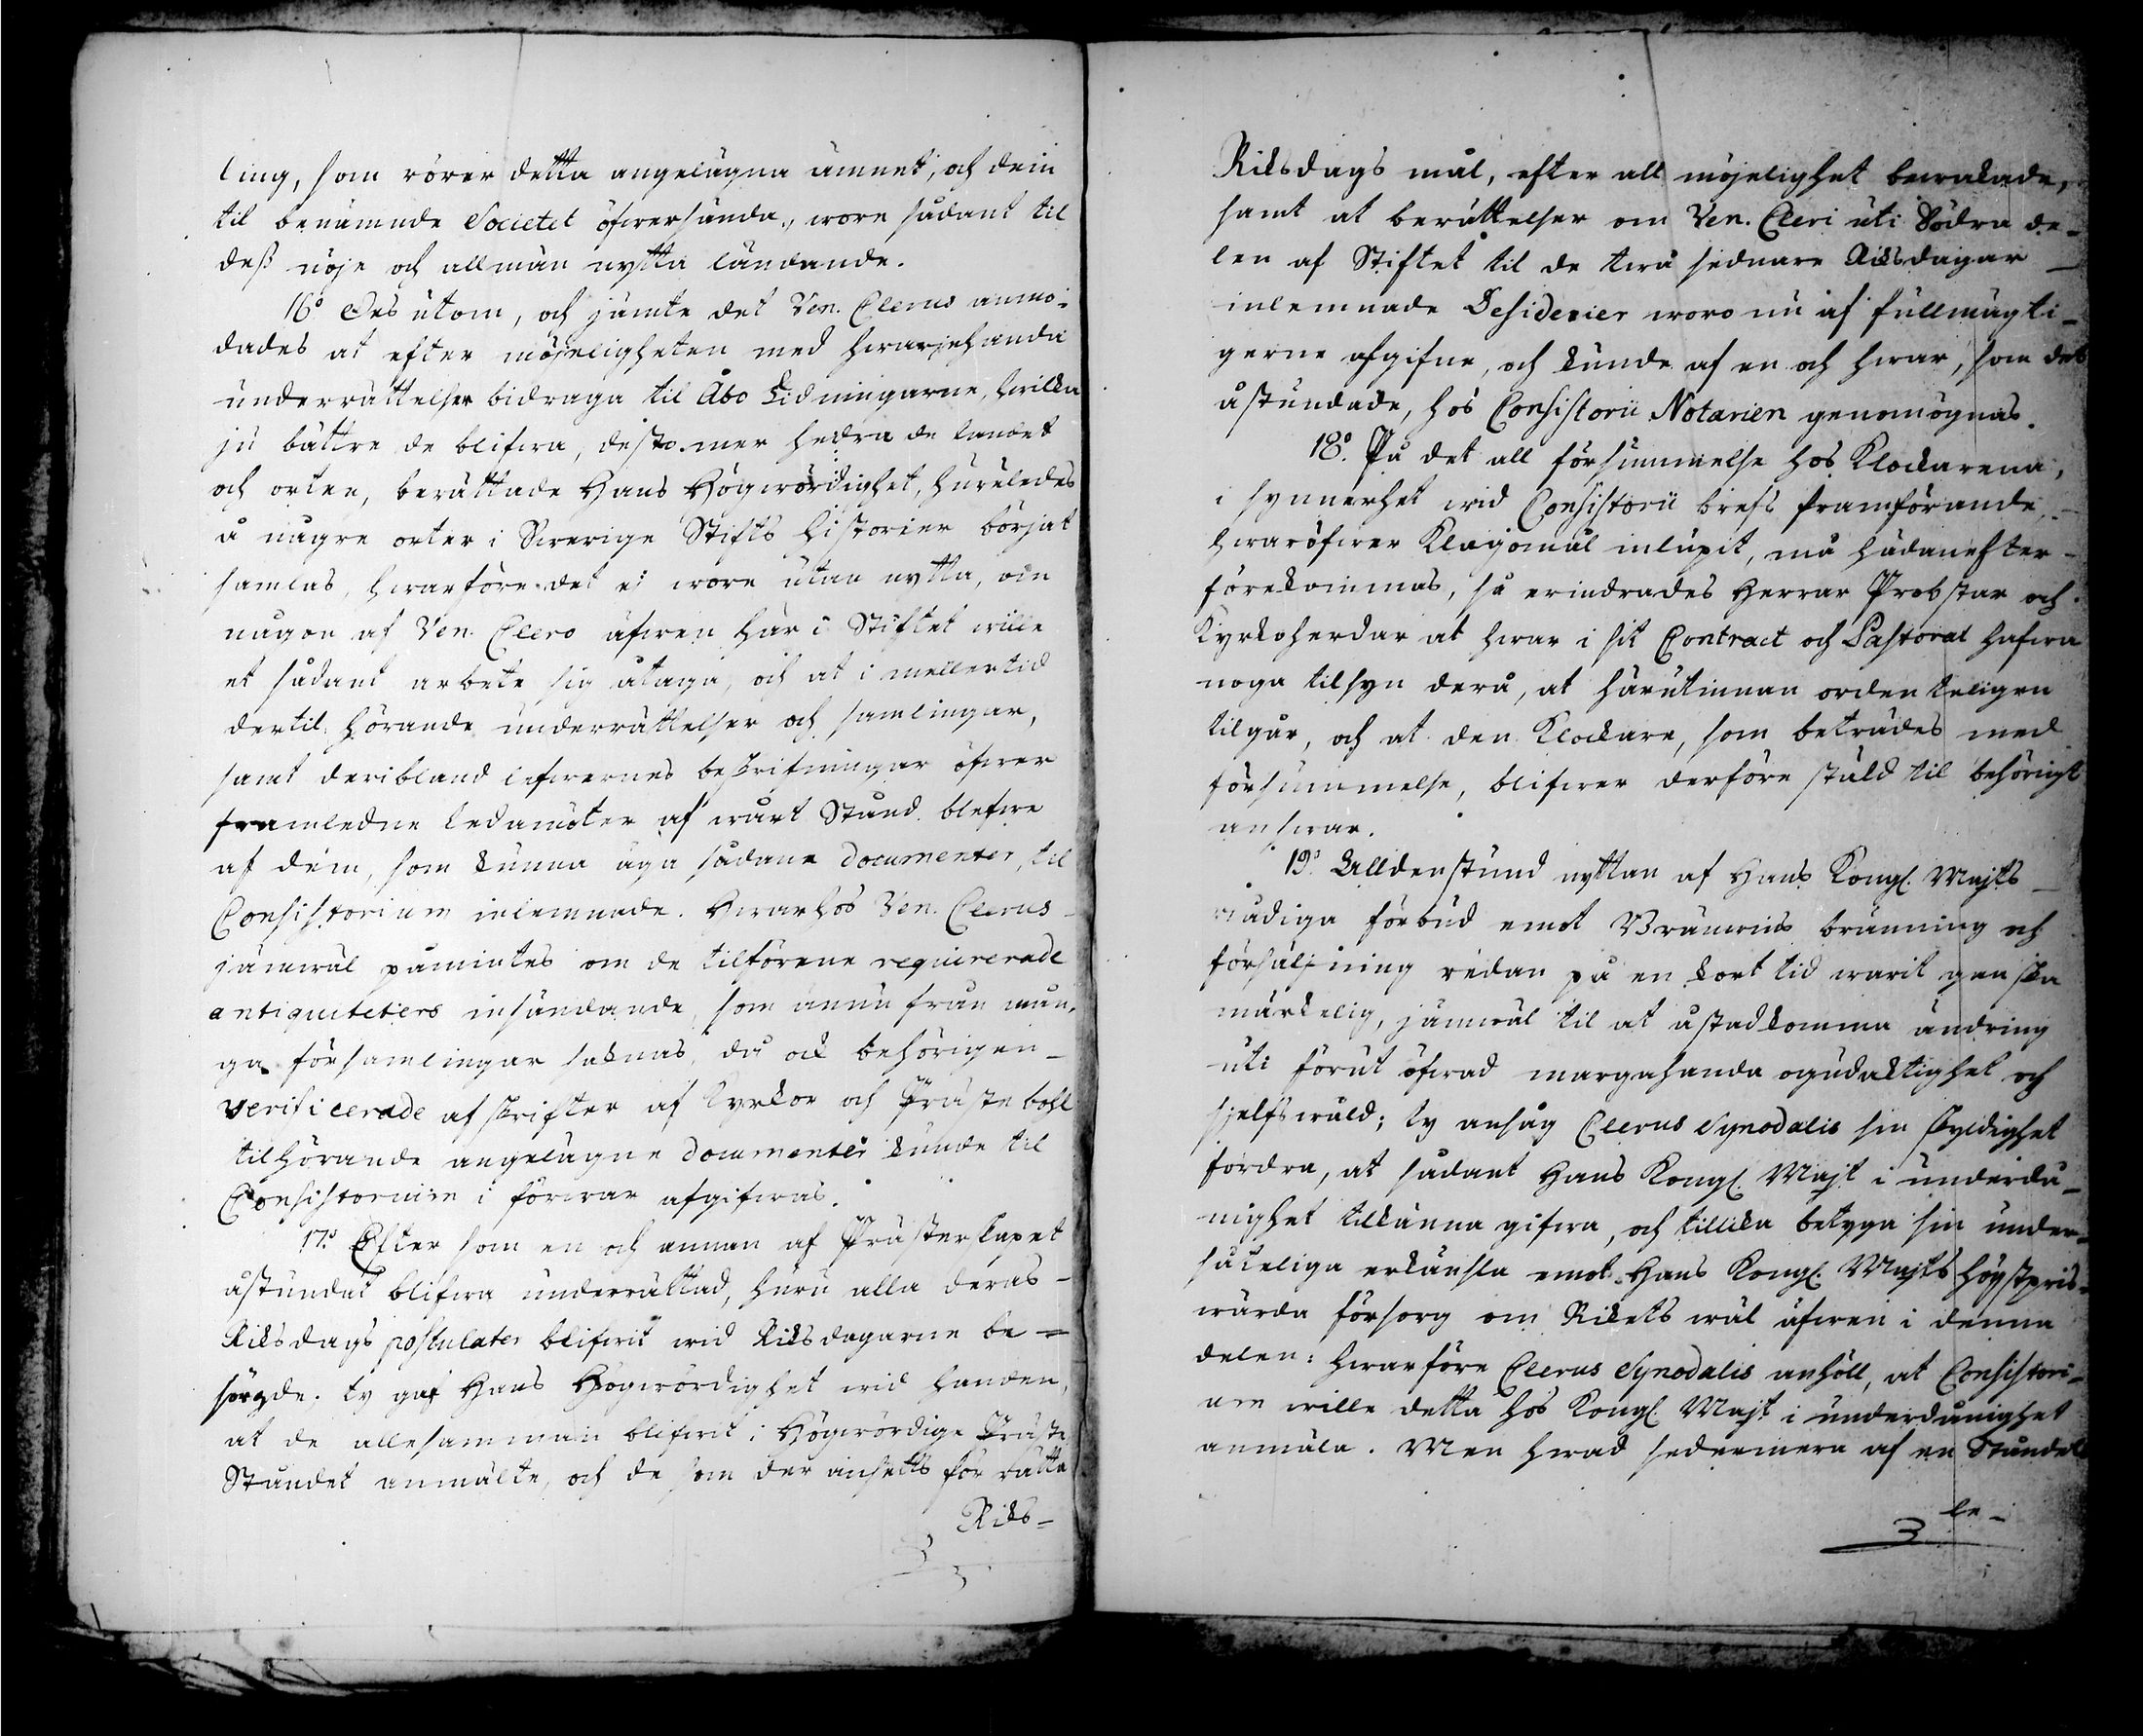 ling, som rörer detta angelägna ämnet, och dem
til benämnde Societet öfwersända, wore sådant til
dess nöje och allmän nytta ländande.
16:o Des utom, och jämte det Ven. Clerus anmo-
dades at efter möjeligheten med hwarjehanda
underrättelser bidraga til Åbo Tidningarne, hwilka
ju bättre de blifwa, desto mer hedra de landet
och orten, berättade Hans Högwördighet, huruledes
å någre orter i Swerige Stifts historier börjat
samlas, hwarföre det ej wore utan nytta, om
någon af Ven. Clero äfwen här i Stiftet wille
et sådant arbete sig åtaga, och at i mellertid
dertil hörande underrättelser och samlingar,
samt deribland lefwernes beskrifningar öfwer
framledne ledamöter af wårt Stånd blefwe
af dem, som kunna äga sådane documenter, til
Consistorium inlemnade. Hwarhos Ven. Clerus
jämwäl påmintes om de tilförene requirerade
antiquiteters insändande, som ännu från mån-
ga församlingar saknas, då ock behörigen
verificerade afskrifter af Kyrkor och Prästebohl
tilhörande angelägne documenter kunde til
Consistorium i förwar afgifwas.
17:o Efter som en och annan af Prästerskapet
åstundat blifwa underrättad, huru alla deras
Riksdags postulater blifwit wid Riksdagarne be-
sörgde. ty gaf Hans Högwördighet wid handen,
at de allesamman blifwit i Högwördige Präste
Ståndet anmälte, och de som der ansetts för rätta
Riks-
Riksdags mål, efter all möjelighet bewakade,
samt at berättelser om Ven. Cleri uti Södra de-
len af Stiftet til de twå sednare Riksdagar
inlemnade Desiderier woro nu af fullmägti-
gerne afgifne, och kunde af en och hwar, som det
åstundade, hos Consistorii Notarien genomögnas.
18:o På det all försummelse hos Klockarena,
i synnerhet wid Consistorii brefs framförande,
hwaröfwer Klagomål inlupit, må hädanefter
förekommas, så erindrades Herrar Probstar och
Kyrkoherdar at hwar i sit Contract och Pastorat hafwa
noga tilsyn derå, at härutinnan ordenteligen
tilgår, och at den Klockare, som beträdes med
försummelse, blifwer derföre stäld til behörigt
answar.
19:o Alldenstund nyttan af Hans Kongl. Majts
nådiga förbud emot Bränwins bränning och
försäljning redan på en kort tid warit ganska
märkelig, jämwäl til at åstadkomma ändring
uti förut öfwad margahanda ogudaktighet och
sjelfswåld; ty ansåg Clerus Synodalis sin skyldighet
fordra, at sådant Hans Kongl. Majt i underdå-
nighet tilkänna gifwa, och tillika betyga sin under-
såteliga erkänsla emot Hans Kongl. Majts högstpris-
wärda försorg om Rikets wäl äfwen i denna
delen: hwarföre Clerus Synodalis anhöll, at Consistori-
um wille detta hos Kongl. Majt i underdånighet
anmäla. Men hwad sedermera af en Ståndet
le-